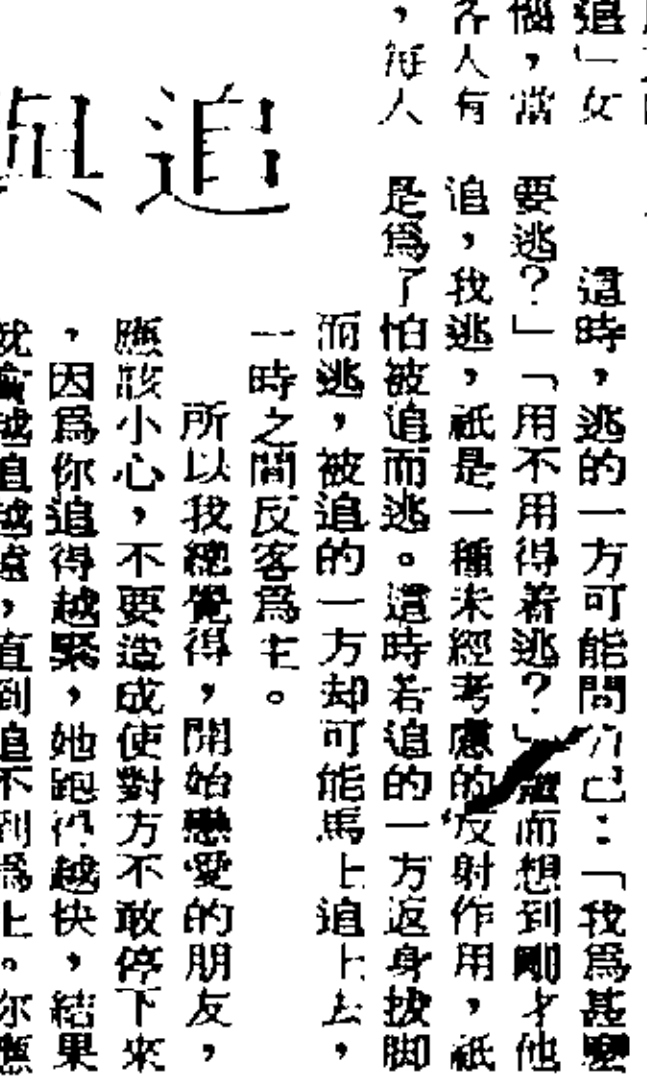 追」女
惱，當
各人有
，每人
追與
這時，逃的一方可能問自己：「我爲甚麼
要逃？」「用不用得着逃？」繼而想到剛才他
追，我逃，祇是一種未經考慮的反射作用，祇
是爲了怕被追而逃。這時若追的一方返身拔脚
而逃，被追的一方却可能馬上追上去，
一時之間反客爲主。
所以我總覺得，開始戀愛的朋友，
應該小心，不要造成使對方不敢停下來
，因爲你追得越緊，她跑得越快，結果
就會越追越遠，直到追不到爲止。你應